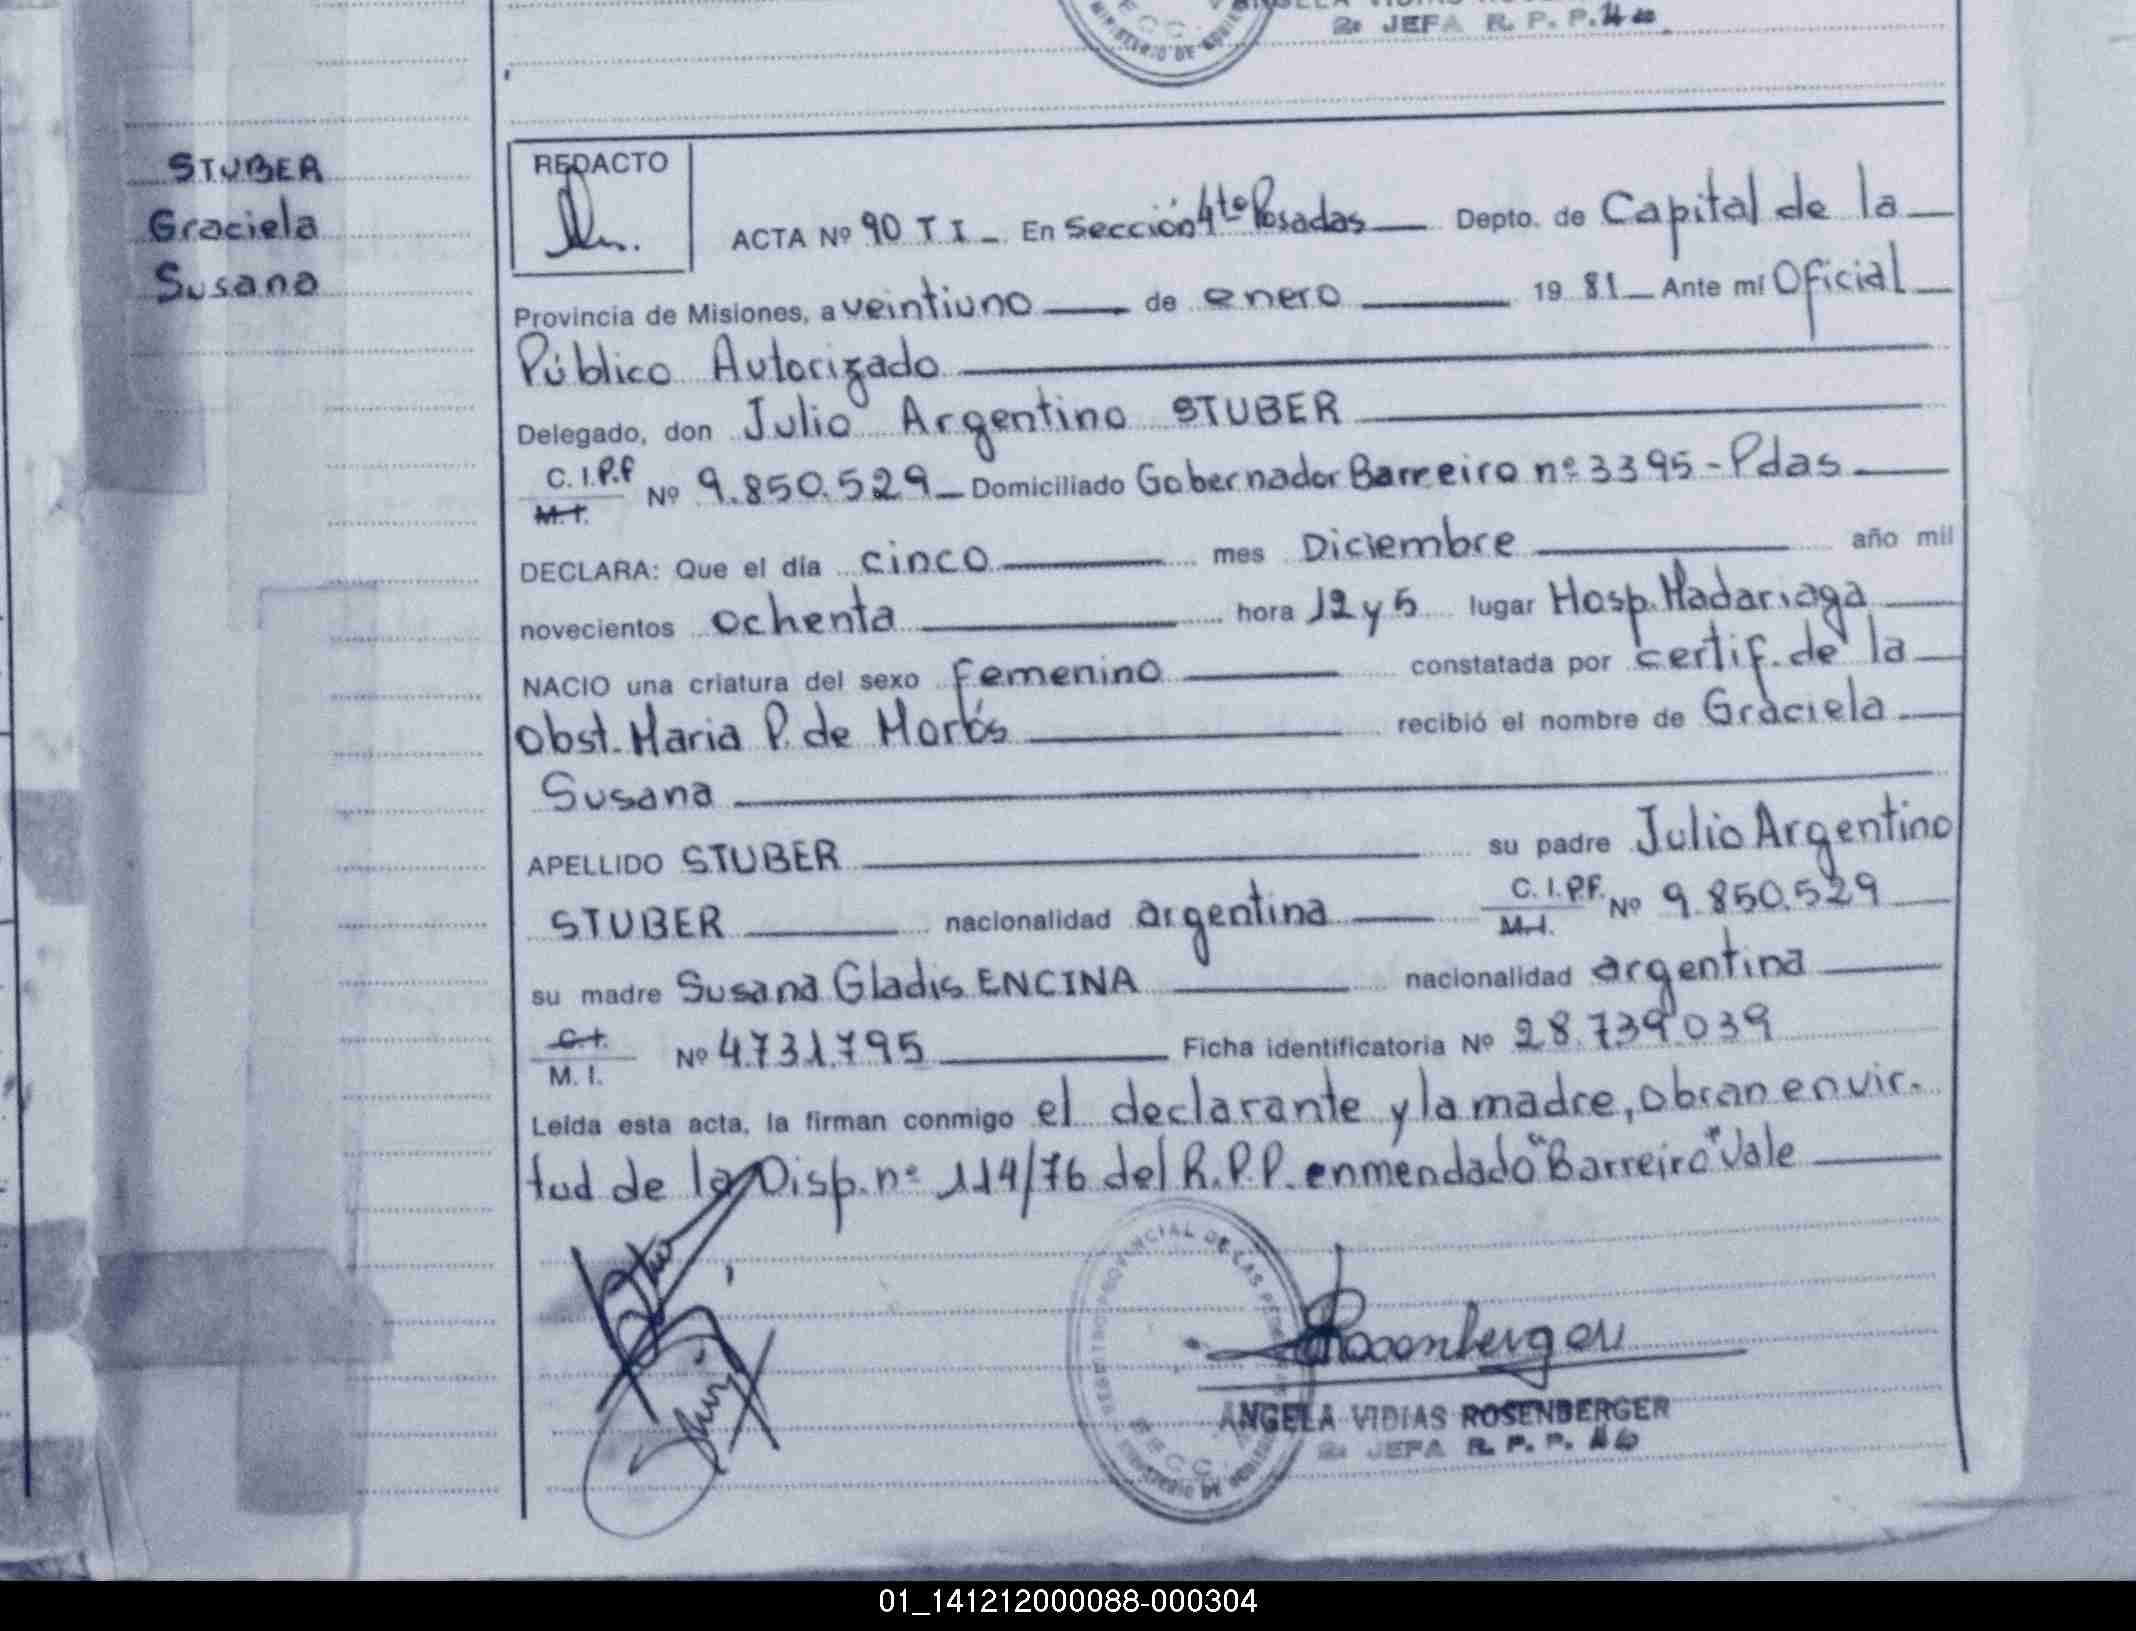 2º JEFA R. P. P.
MINISTERIO DE
STUBER
Graciela
Susana
REDACTO
ACTA Nº 90 T I - En Sección 4to Posadas Depto. de Capital de la
Provincia de Misiones, a veintiuno de enero 19 81 Ante mí Oficial
Público Autorizado
Delegado, don Julio Argentino STUBER
C.I.P.F
M.I. Nº 9.850.529 Domiciliado Gobernador Barreiro nº 3395 - Pdas
DECLARA: Que el día cinco mes Diciembre año mil
novecientos ochenta hora 12 y 5 lugar Hosp. Madariaga
NACIO una criatura del sexo femenino constatada por certif. de la
Obst. Maria P. de recibió el nombre de Graciela
Susana
APELLIDO STUBER su padre Julio Argentino
STUBER nacionalidad argentina C.I.P.F. M.I. Nº 9.850.529
su madre Susana Gladis ENCINA nacionalidad argentina
C.I.
M.I. Nº 4.731.795 Ficha identificatoria Nº 28.739.039
Leída esta acta, la firman conmigo el declarante y la madre, obran en vir-
tud de la Disp. nº 114/76 del R.P.P. enmendado "Barreiro" Vale
REGISTRO PROVINCIAL DE LAS PERSONAS
MINISTERIO DE
Rosenberger
ANGELA VIDIAS ROSENBERGER
2º JEFA R. P. P.
01_141212000088-000304